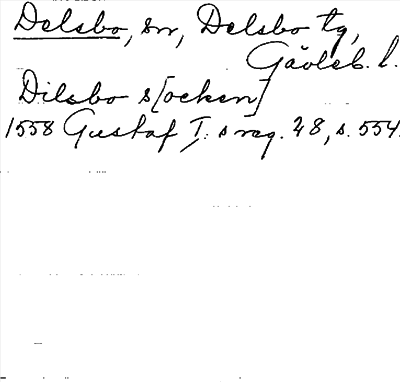 Delsbo, sn, Delsbo tg,
Gävleb. l.
Dilsbo s[ocken]
1558 Gustaf I:s reg. 28, s. 554.